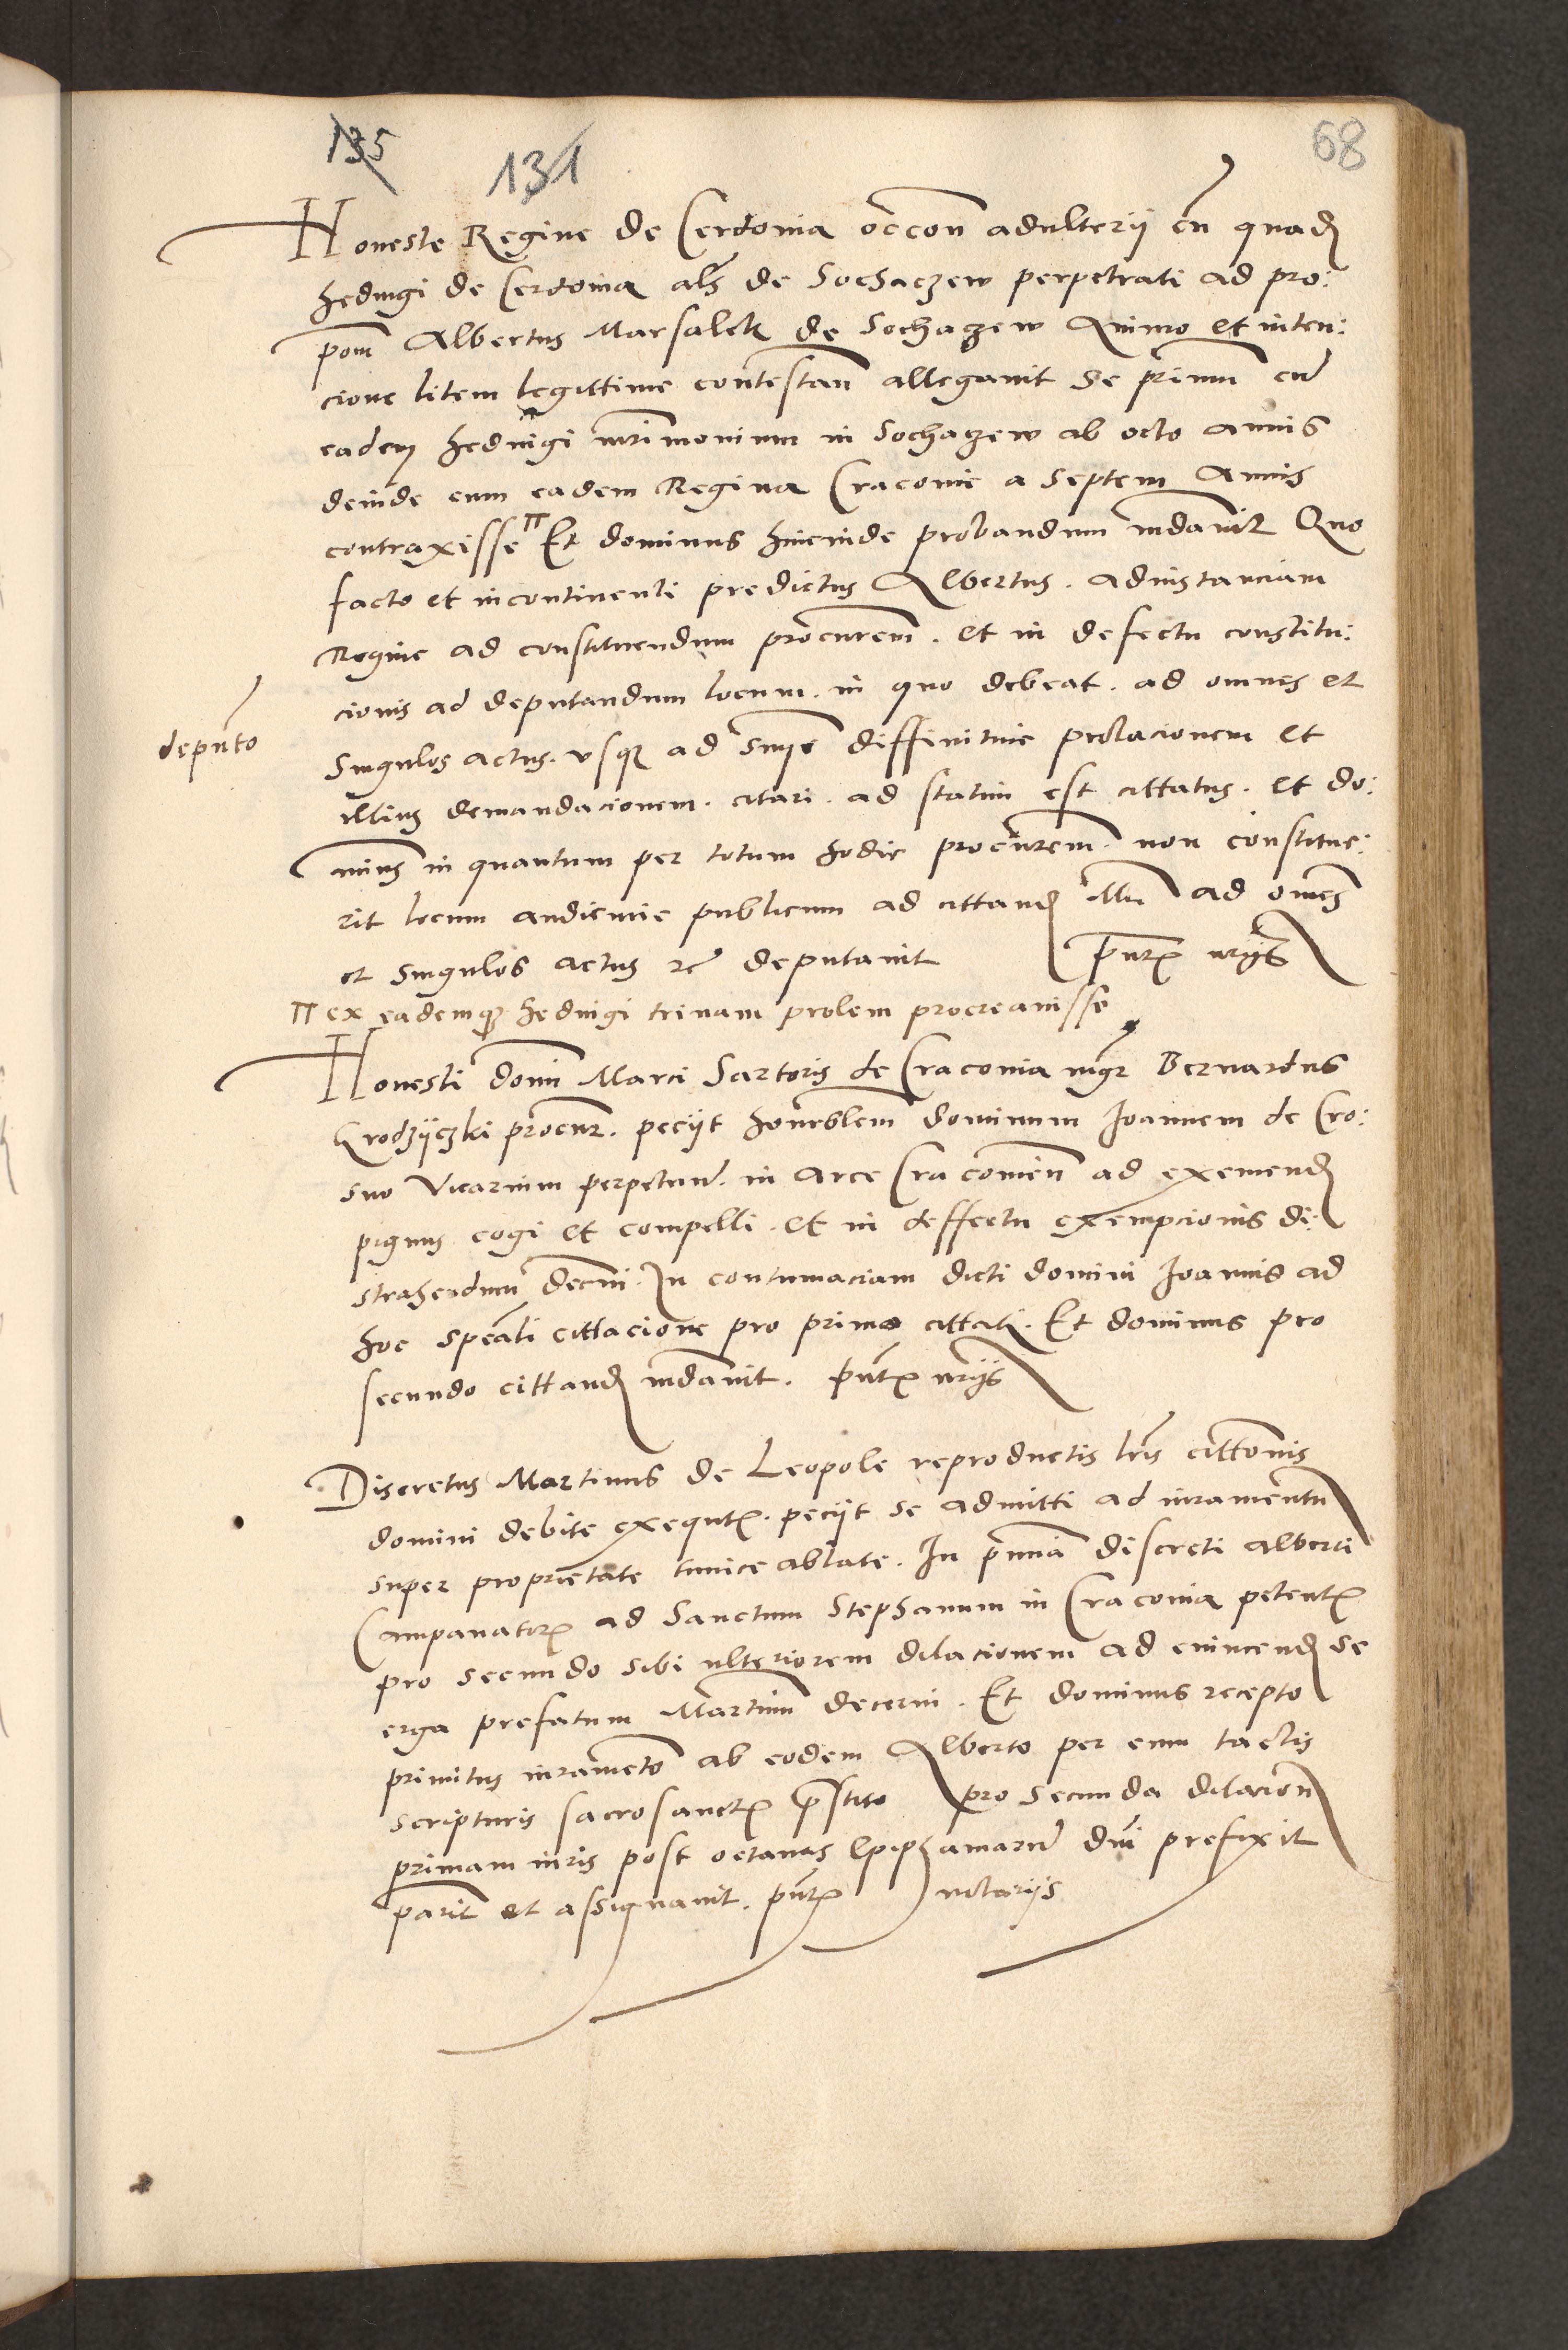 135 131 68
Honeste Regine de Cerdonia occon adulterij cu quad
hedvigi de Cerdonia als de Sochaczew perpetrati ad pro:
pom Albertus Marsalek de Sochaczew Animo et inten:
cione litem legittime contestan allegavit se primu cu
eadem hedvigi mrimonium in Sochaczew ab octo annis
deinde cum eadem Regina Cracovie a septem Annis
contraxisse π Et dominus hincinde probandum mdavit Quo
facto et incontinenti predictus Albertus . adinstanciam
Regine ad constituendum procurem . et in defectu constitu:
cionis ad deputandum locum . in quo debeat . ad omnes et
deputo
singulos actus . usq ad sniye diffinitive prolacionem et
illius demandacionem . citari . ad statim est cittatus . et do:
minus in quantum per totum hodie procurem . non constitue:
rit locum audiencie publicum ad cittand illu ad omes
et singulos actus rc deputavit pntz nrijs
π ex eademq hedvigi trinam prolem procreavisse
Honesti domi Marci Sartoris de Cracovia mgr Bernardus
Grodzyczki procur . peciit honrablem dominum Joannem de Cro:
sno vicarium perpetuu . in Arce Cracovien ad exemend
pignus cogi et compelli . et in deffectu exempcionis di:
strahendum decni . In contumaciam dicti domini Joannis ad
hoc speali cittacione pro primo cittati . Et dominus pro
secundo cittand mdavit . pntz nrijs
Discretus Martinus de Leopole reproductis lris cittonis
domini debite exequtz . peciit se admitti ad iuramentu
super proprietate tunice ablate . In pnncia discreti alberti
Campanatorz ad Sanctum Stephanum in Cracovia petentz
pro secundo sibi ulteriorem dilacionem ad evincend se
erga prefatum Martinu decerni . Et dominus recepto
primitus iurameto ab eodem Alberto per eum tactis
scripturis sacrosanctz pstito pro secunda dilacion
primam iuris post octavas Epiphamaru dni prefixit
parit et assignavit . pntz notarijs